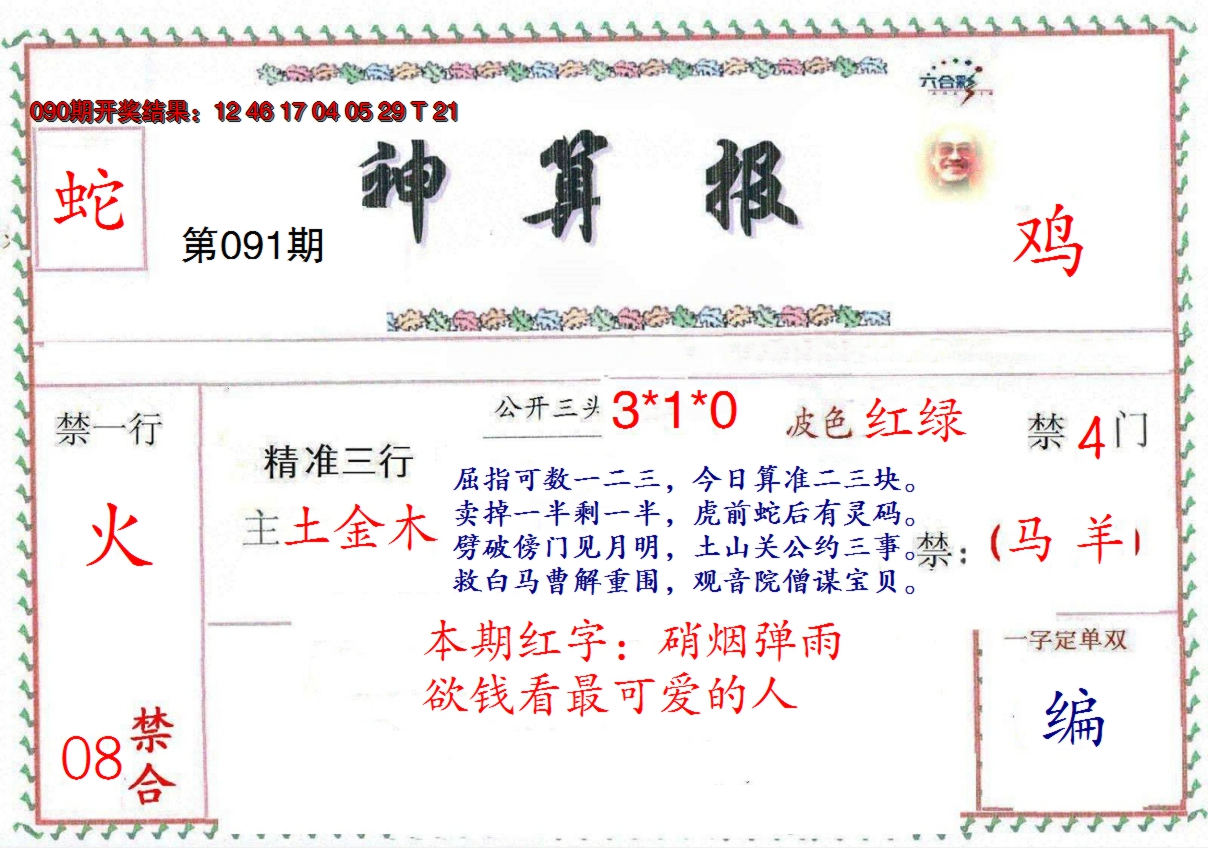 六合彩
090期开奖结果：12 46 17 04 05 29 T 21
神算报
蛇
第091期
鸡
禁一行
火
08禁合
精准三行
主土金木
公开三头 3*1*0
波色 红绿
禁4门
屈指可数一二三，今日算准二三块。
卖掉一半剩一半，虎前蛇后有灵码。
劈破傍门见月明，土山关公约三事。
救白马曹解重围，观音院僧谋宝贝。
禁：（马 羊）
本期红字：硝烟弹雨
欲钱看最可爱的人
一字定单双
编